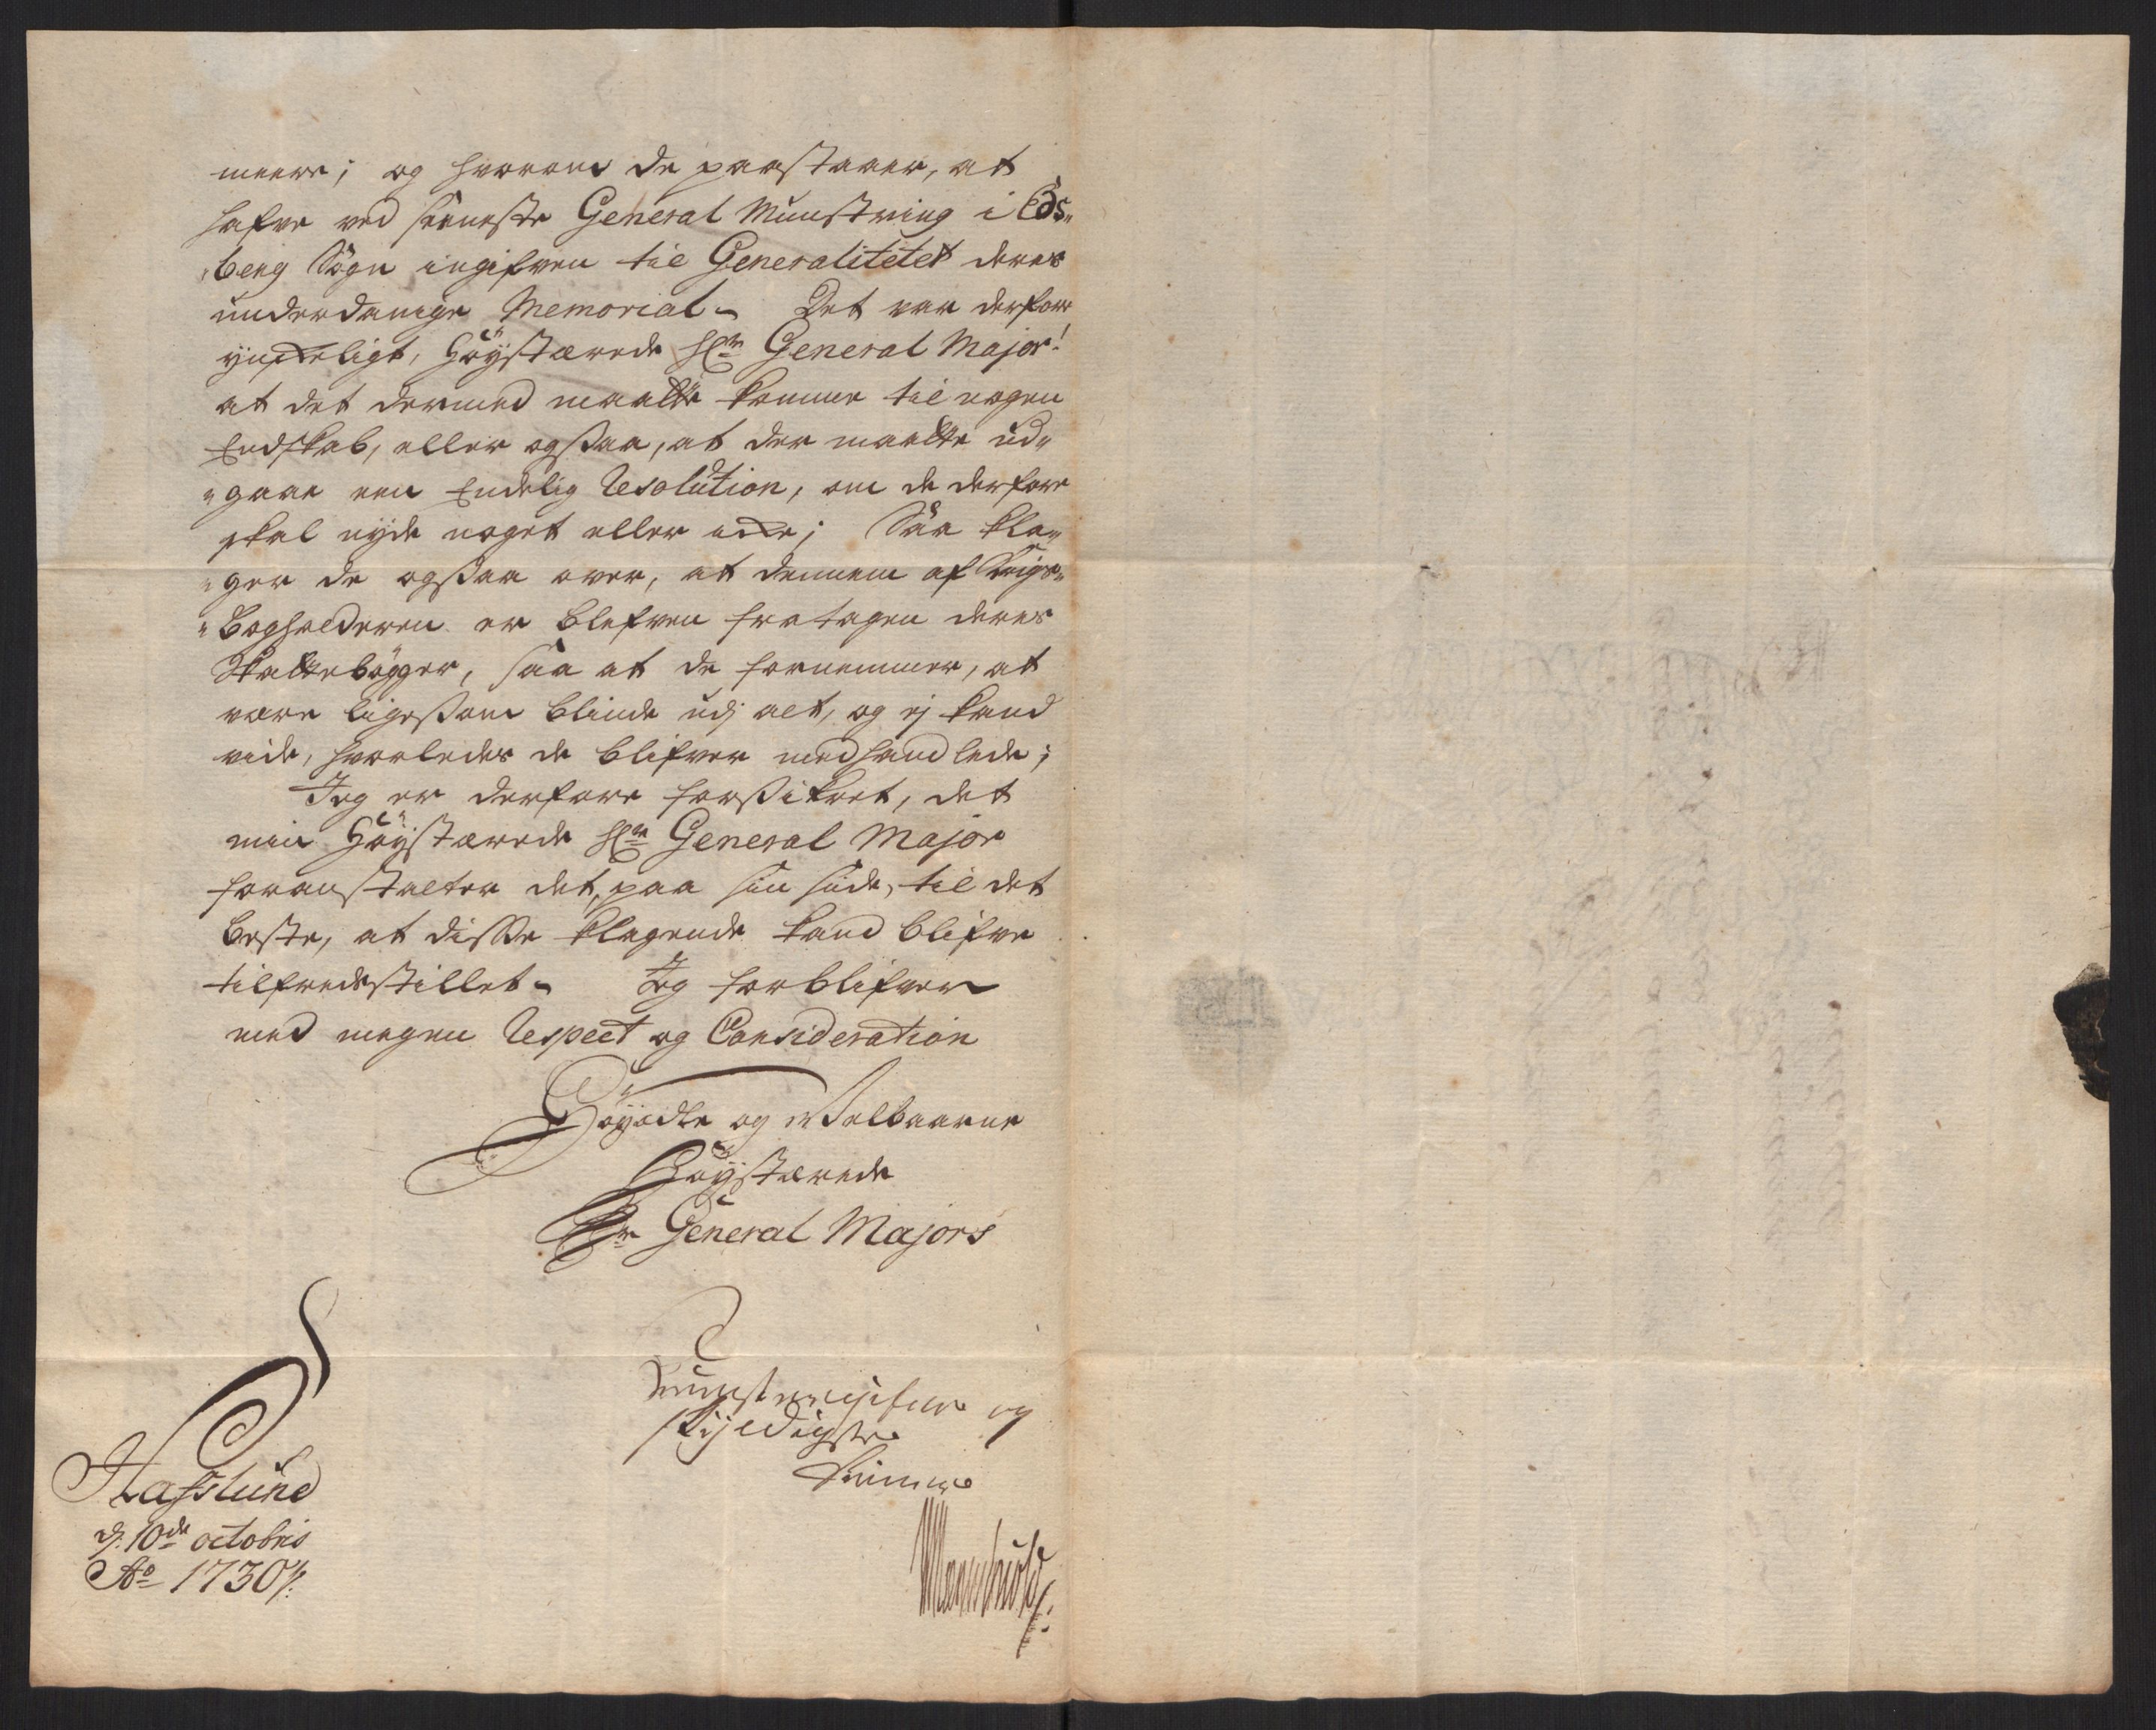 meere; og hvorom de paastaaer, at
hafve ved seeneste General Munstring i Eds„
„berg Sogn ingifven til Generalitetet deres
underdanige Memorial. Det var derfore
ynckeligt, Höystærede Hr General Major!
at det dermed maatte komme til nogen
Endskab, eller ogsaa, at der maatte ud„
„gaae een Endelig Resolution, om de derfore
skal nyde noget eller icke; Saa kla„
„ger de ogsaa over, at dennem af Krigs„
„Bogholderen er blefven fratagen deres
Skattebögger, saa at de fornemmer, at
være ligesom blinde udj alt, og ej kand
vide, hvorledes de blifver medhandlede;
Jeg er derfore forsikret, det
min Höystærede Hr General Major
foranstalter det, paa sin siide, til det
beste, at disse klagende kand blifve
tilfredsstillet. Jeg forblifver
med megen Respect og Consideration
Höyædle og Velbaarne
Höystærede
Hr General Majors
tienstvligste og
skyldigste
tienner
Hafslund
d. 10de octobris
Ao 1730